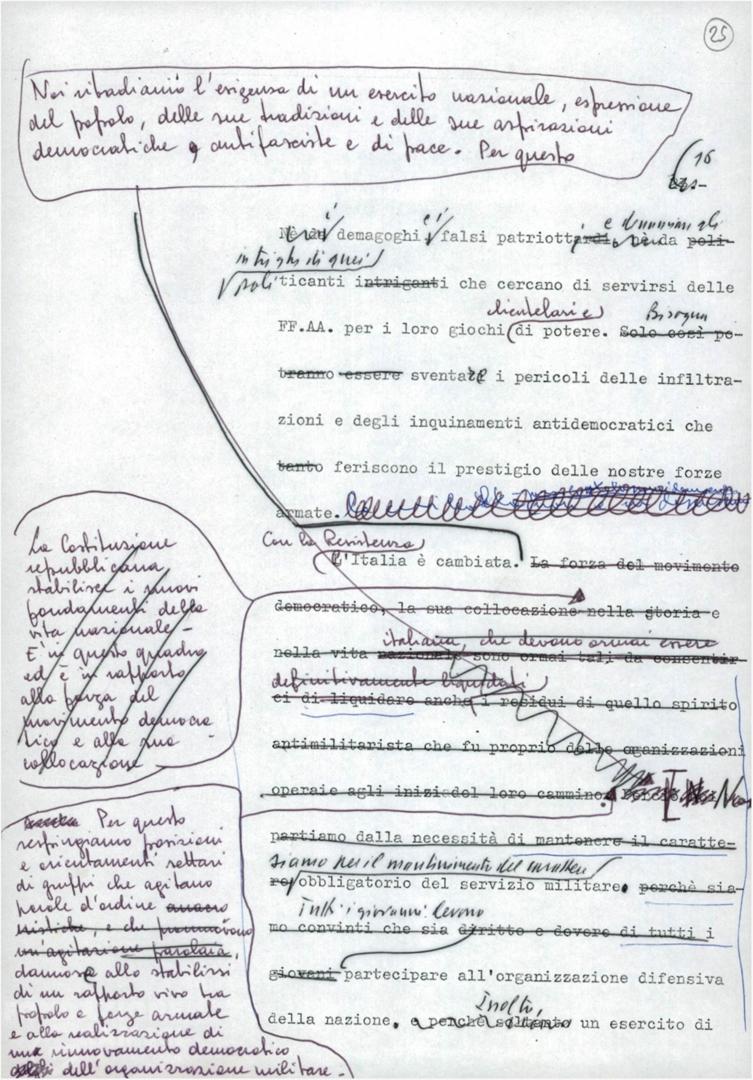 25
Noi ribadiamo l'esigenza di un esercito nazionale, espressione
del popolo, delle sue tradizioni e delle sue aspirazioni
democratiche, antifasciste e di pace. Per questo
16
i demagoghi, e i falsi patriotti e
intrighi di quei
politicanti intriganti che cercano di servirsi delle
clientelari e Bisogna
FF.AA. per i loro giochi di potere. Solo così po-
tranno essere sventare i pericoli delle infiltra-
zioni e degli inquinamenti antidemocratici che
tanto feriscono il prestigio delle nostre forze
armate.
Con la Resistenza
L'Italia è cambiata. La forza del movimento
democratico, la sua collocazione nella storia e
italiana, che devono ormai essere
nella vita nazionale sono ormai tali da consentir-
definitivamente liquidati
ci di liquidare anche i residui di quello spirito
antimilitarista che fu proprio delle oganizzazioni
operaie agli inizi del loro cammino. Noi
partiamo dalla necessità di mantenere il caratte-
siamo per il mantenimento del carattere
re obbligatorio del servizio militare. perchè sia-
Tutti i giovani devono
mo convinti che sia diritto e dovere di tutti i
giovani partecipare all'organizzazione difensiva
Inoltre,
della nazione. e perchè soltanto un esercito di
La Costituzione
repubblicana
stabilisce i nuovi
fondamenti della
vita nazionale -
E' in questo quadro
ed è in rapporto
alla forza del
movimento democra
tico e alla sua
collocazione
Per questo
respingiamo posizioni
e orientamenti settari
di gruppi che agitano
parole d'ordine anacro
nistiche, e che promuovono
un'agitazione parolaia,
dannosa allo stabilirsi
di un rapporto vivo tra
popolo e forze armate
e alla realizzazione di
un rinnovamento democratico
dell'organizzazione militare -